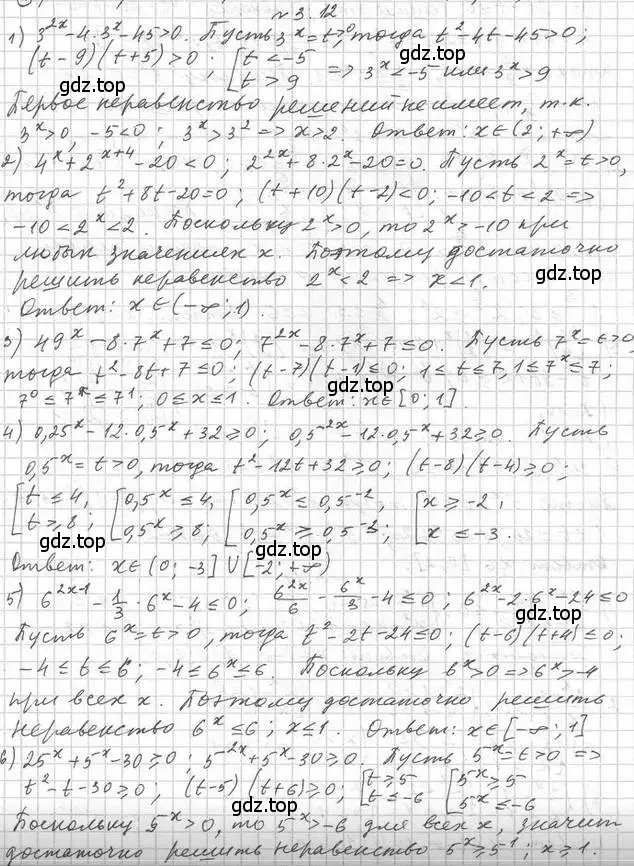 № 3.12
1) 3^{2x} - 4·3^x - 45 > 0. Пусть 3^x = t > 0, тогда t² - 4t - 45 > 0;
(t - 9)(t + 5) > 0; [t < -5 t > 9 => 3^x < -5 или 3^x > 9
Первое неравенство решений не имеет, т.к.
3^x > 0, -5 < 0; 3^x > 3² => x > 2. Ответ: x ∈ (2; +∞)
2) 4^x + 2^{x+4} - 20 < 0; 2^{2x} + 8·2^x - 20 = 0. Пусть 2^x = t > 0,
тогда t² + 8t - 20 = 0; (t + 10)(t - 2) < 0; -10 < t < 2 =>
-10 < 2^x < 2. Поскольку 2^x > 0, то 2^x > -10 при
любых значениях x. Поэтому достаточно
решить неравенство 2^x < 2 => x < 1.
Ответ: x ∈ (-∞; 1).
3) 49^x - 8·7^x + 7 ≤ 0; 7^{2x} - 8·7^x + 7 ≤ 0. Пусть 7^x = t > 0,
тогда t² - 8t + 7 ≤ 0; (t - 7)(t - 1) ≤ 0; 1 ≤ t ≤ 7, 1 ≤ 7^x ≤ 7;
7^0 ≤ 7^x ≤ 7^1; 0 ≤ x ≤ 1. Ответ: x ∈ [0; 1].
4) 0,25^x - 12·0,5^x + 32 ≥ 0; 0,5^{2x} - 12·0,5^x + 32 ≥ 0. Пусть
0,5^x = t > 0, тогда t² - 12t + 32 ≥ 0; (t - 8)(t - 4) ≥ 0;
[t ≤ 4, t ≥ 8; [0,5^x ≤ 4, 0,5^x ≥ 8; [0,5^x ≤ 0,5^{-2}, 0,5^x ≥ 0,5^{-3}; [x ≥ -2, x ≤ -3.
Ответ: x ∈ (0; -3] ∪ [-2; +∞)
5) 6^{2x-1} - 1/3 · 6^x - 4 ≤ 0; 6^{2x}/6 - 6^x/3 - 4 ≤ 0; 6^{2x} - 2·6^x - 24 ≤ 0
Пусть 6^x = t > 0, тогда t² - 2t - 24 ≤ 0; (t - 6)(t + 4) ≤ 0;
-4 ≤ t ≤ 6; -4 ≤ 6^x ≤ 6. Поскольку 6^x > 0 => 6^x > -4
при всех x. Поэтому достаточно решить
неравенство 6^x ≤ 6; x ≤ 1. Ответ: x ∈ [-∞; 1]
6) 25^x + 5^x - 30 ≥ 0; 5^{2x} + 5^x - 30 ≥ 0. Пусть 5^x = t > 0 =>
t² - t - 30 ≥ 0; (t - 5)(t + 6) ≥ 0; [t ≥ 5 t ≤ -6 [5^x ≥ 5 5^x ≤ -6
Поскольку 5^x > 0, то 5^x > -6 для всех x, значит
достаточно решить неравенство 5^x ≥ 5^1; x ≥ 1.
gdz.top
gdz.top
gdz.top
gdz.top
gdz.top
gdz.top
gdz.top